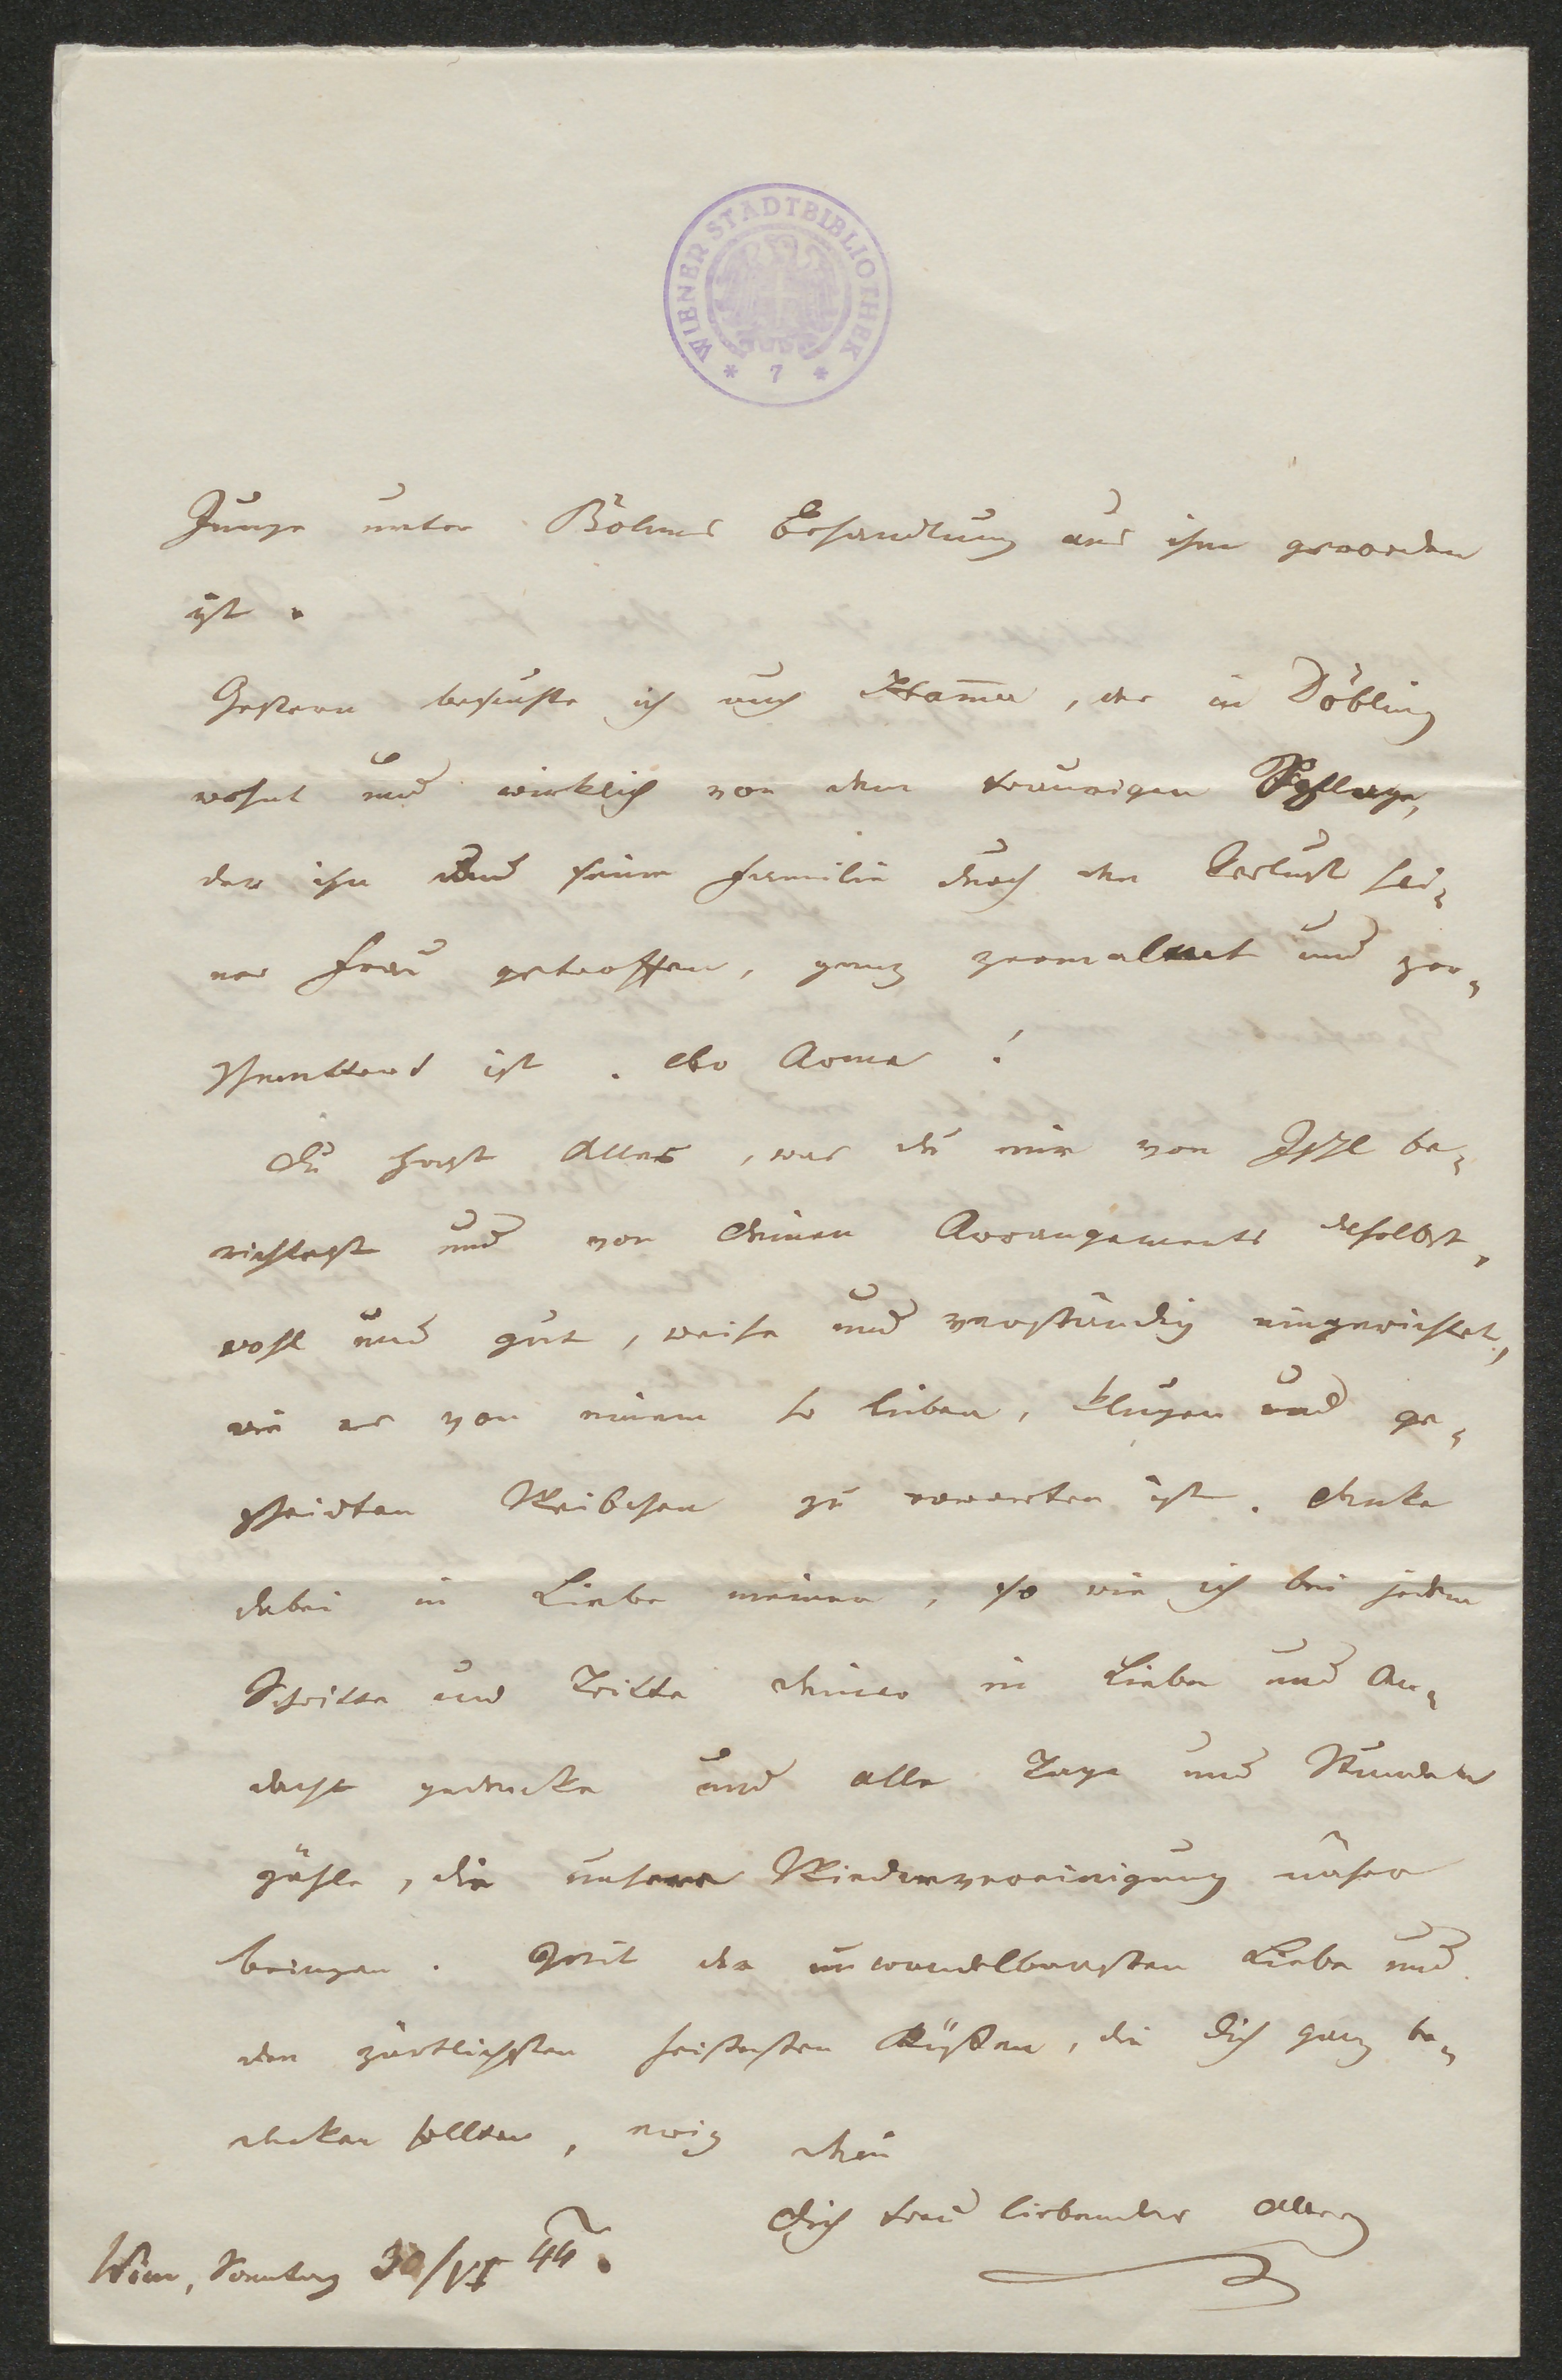 WIENER STADTBIBLIOTHEK
* 7 *
Junge unter Böhms Behandlung aus ihm geworden
ist.
Gestern besuchte ich auch , der in Döbling
wohnt und wirklich von dem traurigen Schlage,
der ihn und seine Familie durch den Verlust sei-
ner Frau getroffen, ganz zermalmt und zer-
schmettert ist. der Arme!
Du hast Alles, was du mir von Ischl be-
richtest und von deinen Arrangements daselbst,
wohl und gut, weise und verständig eingerichtet,
wie es von einem so lieben, klugen und ge-
scheidten Weibchen zu erwarten ist. denke
dabei in Liebe meiner, so wie ich bei jedem
Schritte und Tritte deiner in Liebe und An-
dacht gedenke und alle Tage und Stunden
zähle, die unsere Wiedervereinigung näher
bringen. Mit der unwandelbarsten Liebe und
den zärtlichsten heißesten Küßen, die dich ganz be-
decken sollten, ewig dein
dich treu liebender
Wien, Sonntag 30/VI 44.